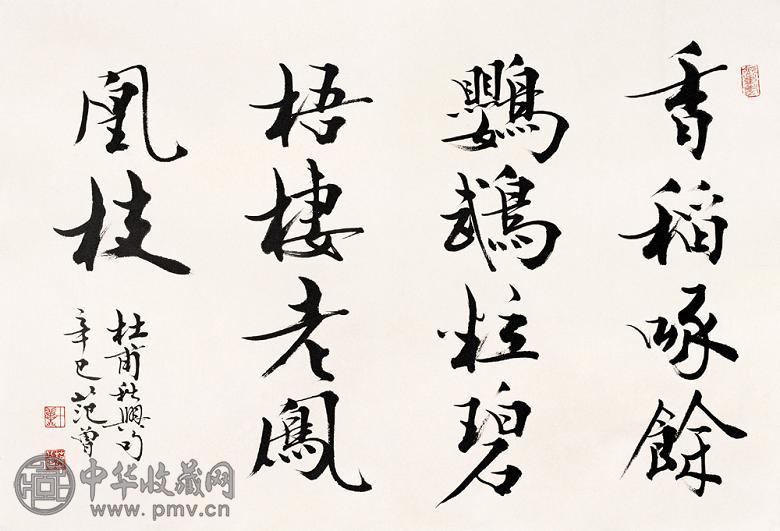 香稻啄餘
鸚鵡粒碧
梧棲老鳳
凰枝
杜甫秋興句
辛巳范曾
中华收藏网
www.pmv.cn